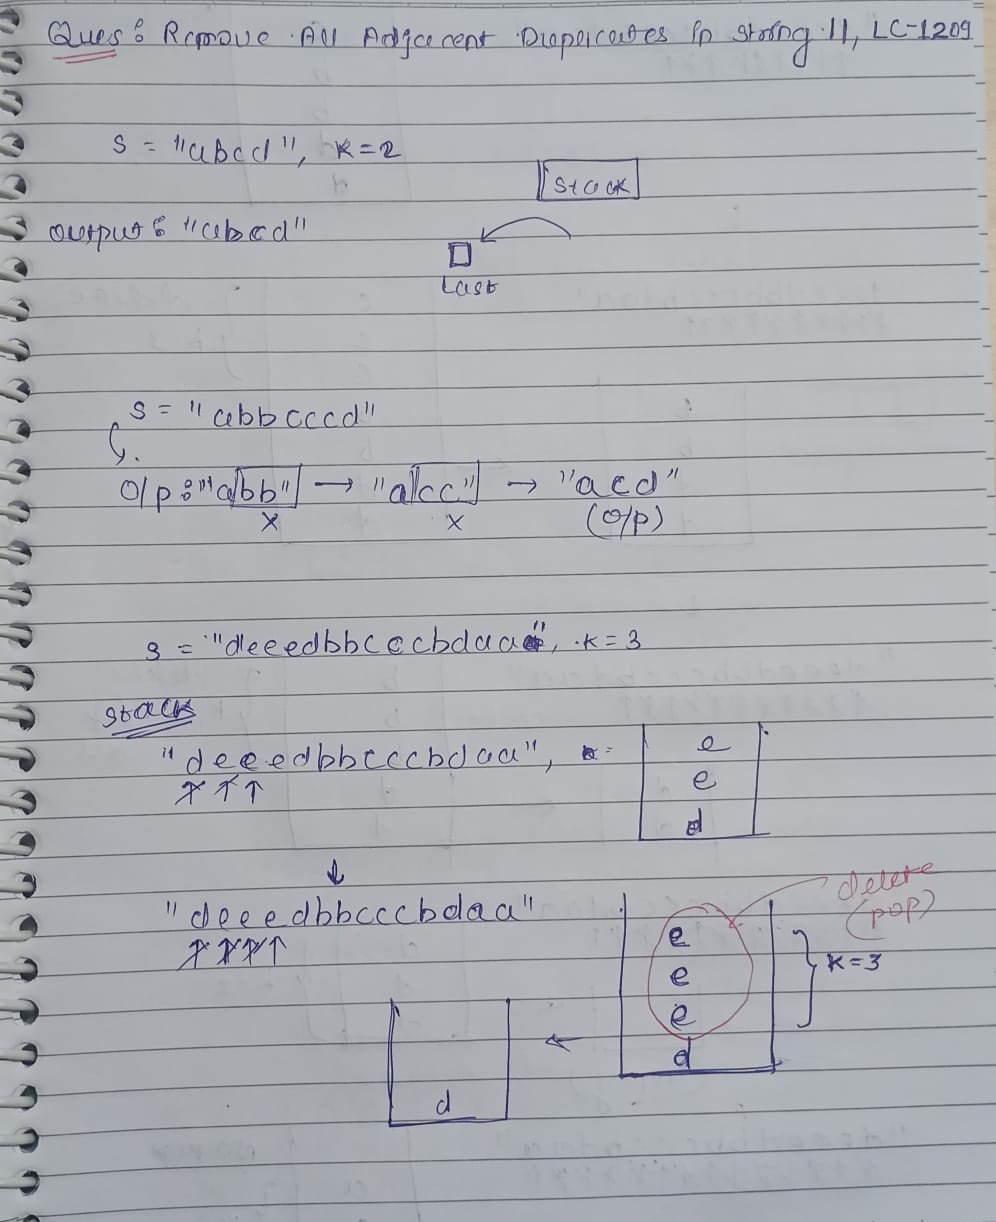 Ques : Remove All Adjacent Duplicates in string II, LC-1209
s = "abcd", k=2
Stack
Output : "abcd"
Last
s = "abbcccd"
O/p : "abb" → "acc" → "acd"
x x (O/p)
s = "deeedbbcccbdaa", k=3
Stack
"deeedbbcccbdaa",
e
e
d
↓
"deeedbbcccbdaa"
delete
(pop)
e
e
e
d
k=3
d